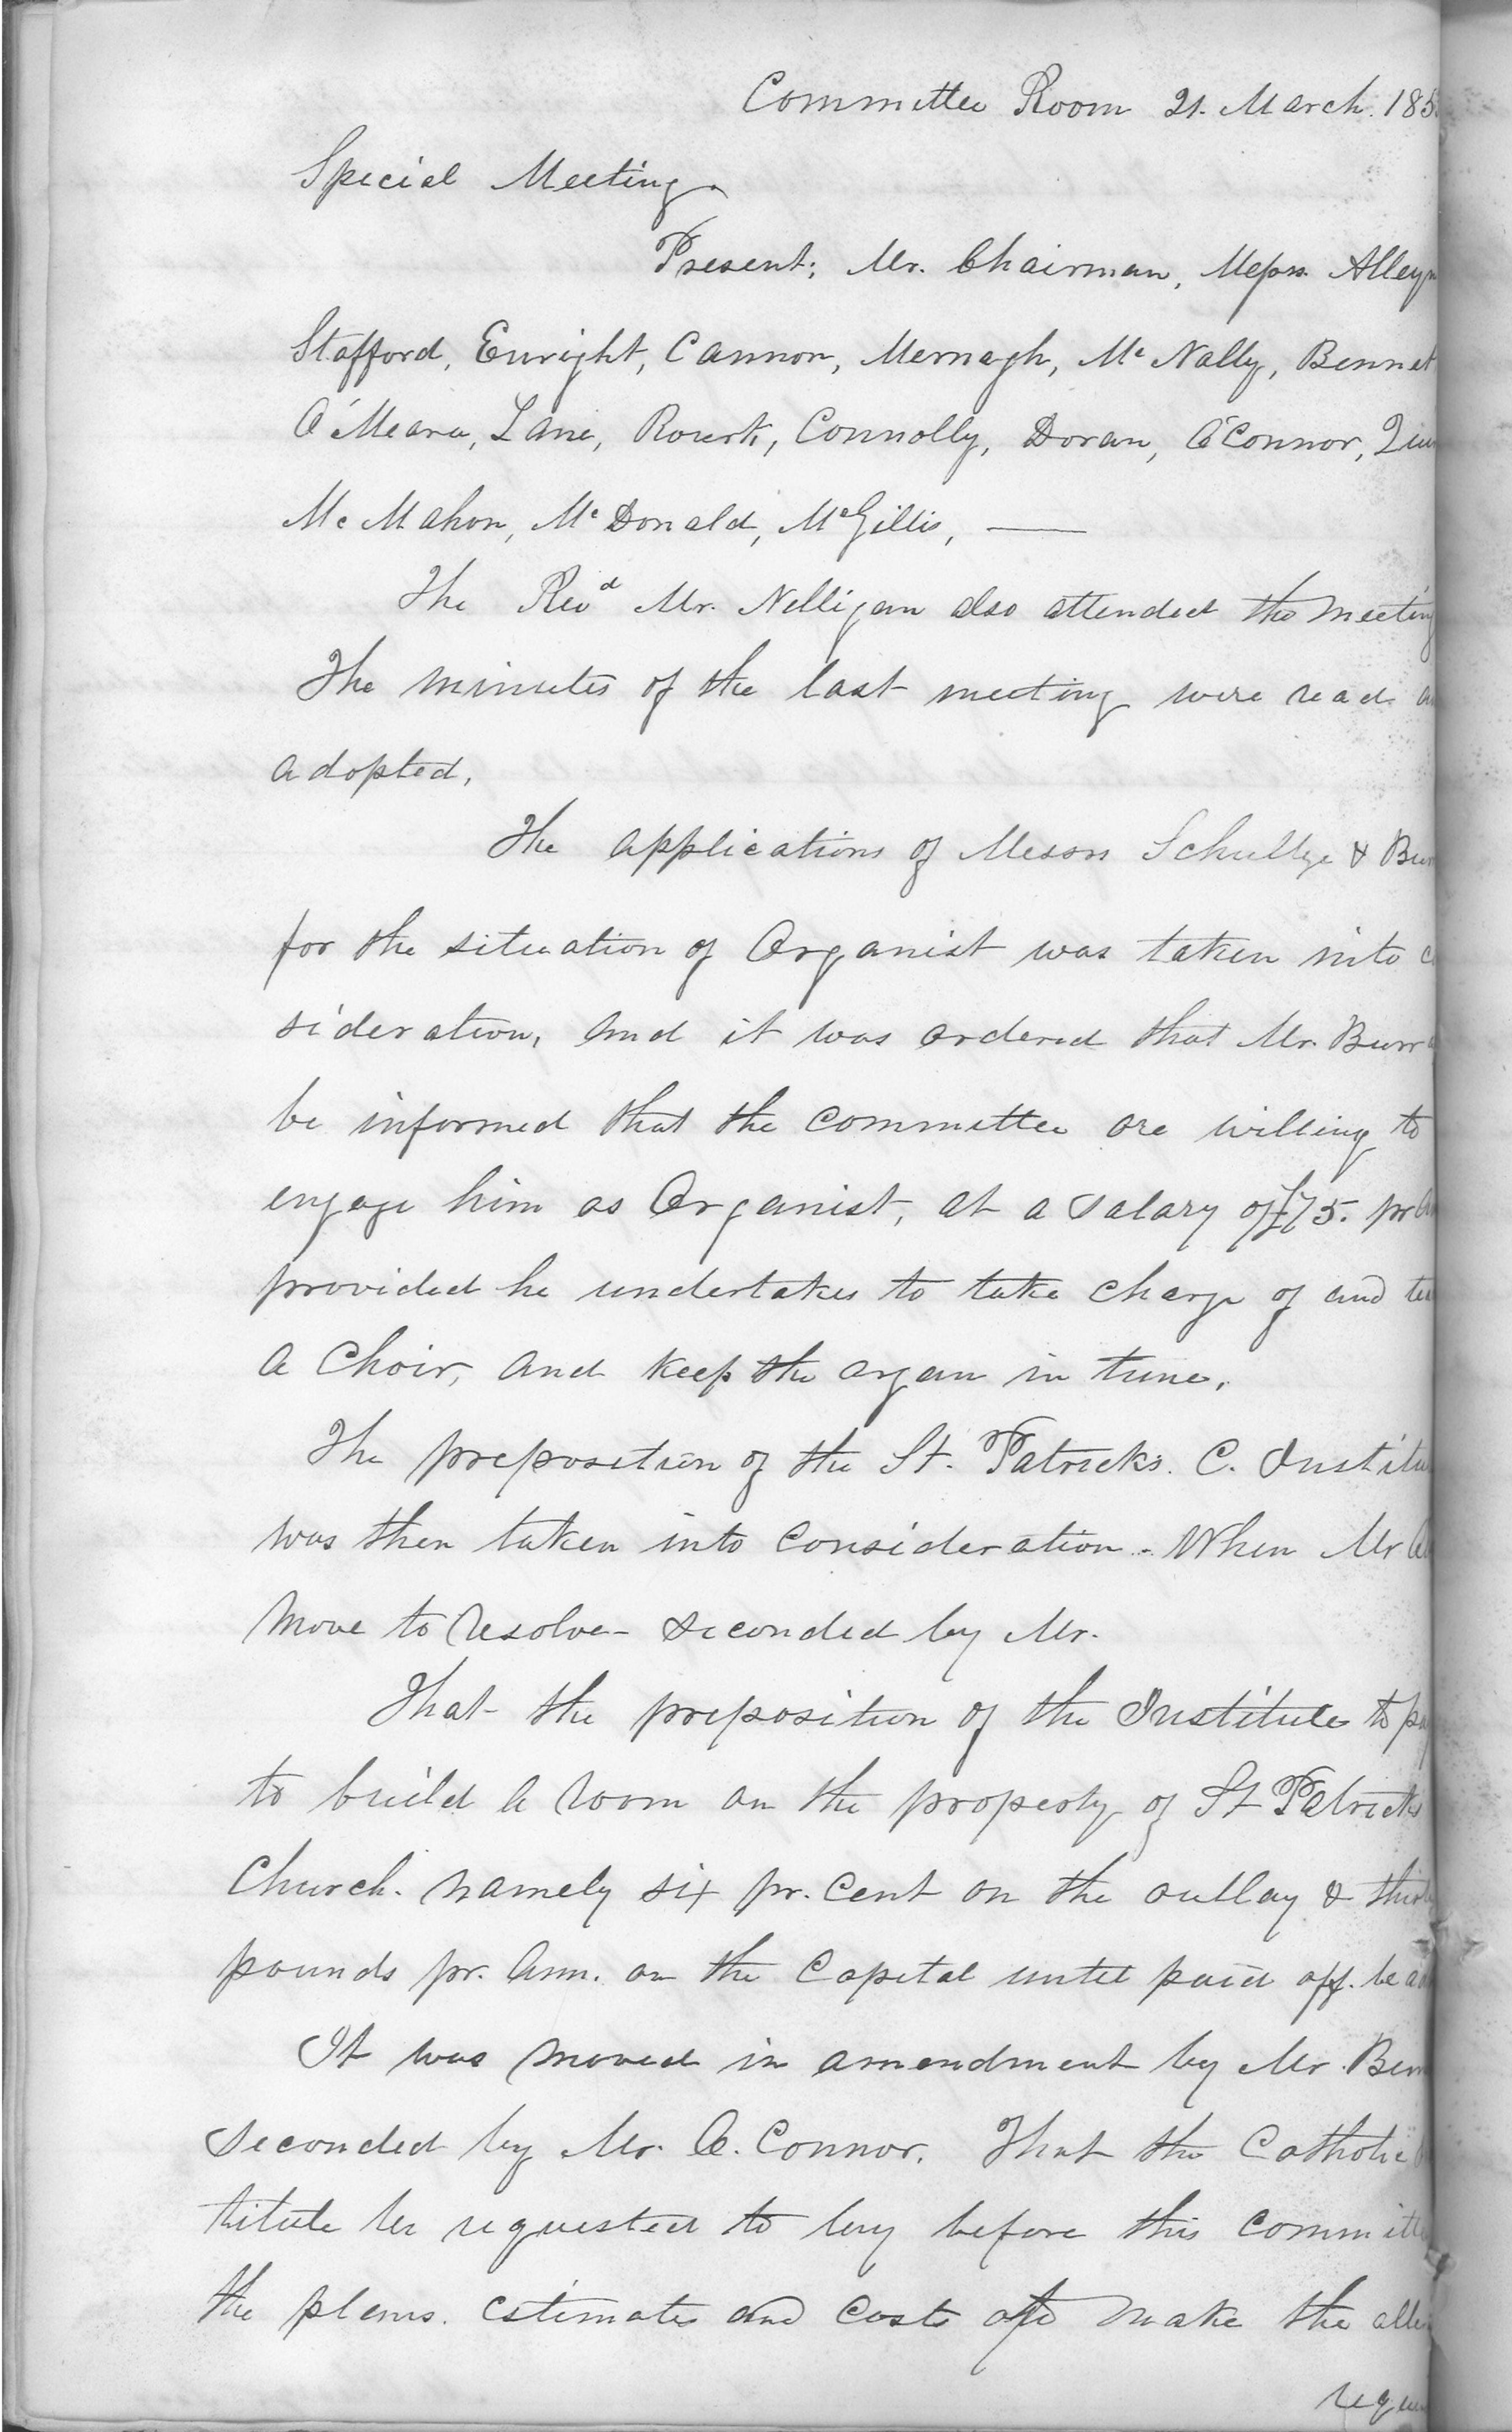 Committee Room 21. March. 185
Special Meeting.
Present; Mr. Chairman, Messrs. Alleyn
Stafford, Enright, Cannon, Mernagh, Mc Nally, Bennet
O'Meara, Lane, Rourk, Connolly, Doran, O'Connor,
Mc Mahon, Mc Donald, McGillis, —
The Revd Mr. Nelligan also attended the meeting
The minutes of the last meeting were read
adopted.
The applications of Messrs Schultze &
for the situation of Organist was taken into
sideration, and it was ordered that Mr.
be informed that the committee are willing to
engage him as Organist, at a salary of £75. pr
provided he undertakes to take charge of and
a Choir, and keep the organ in tune.
The proposition of the St. Patricks. C. Institu
was then taken into consideration. When Mr
move to resolve - seconded by Mr.
That the proposition of the Institute to
to build a room on the property of St Patricks
Church. namely six pr. cent on the outlay &
pounds pr. Ann. on the Capital until paid off. be
It was moved in amendment by Mr.
seconded by Mr. O. Connor. That the Catholic
titute be requested to lay before this committe
the plans. estimates and costs of make the